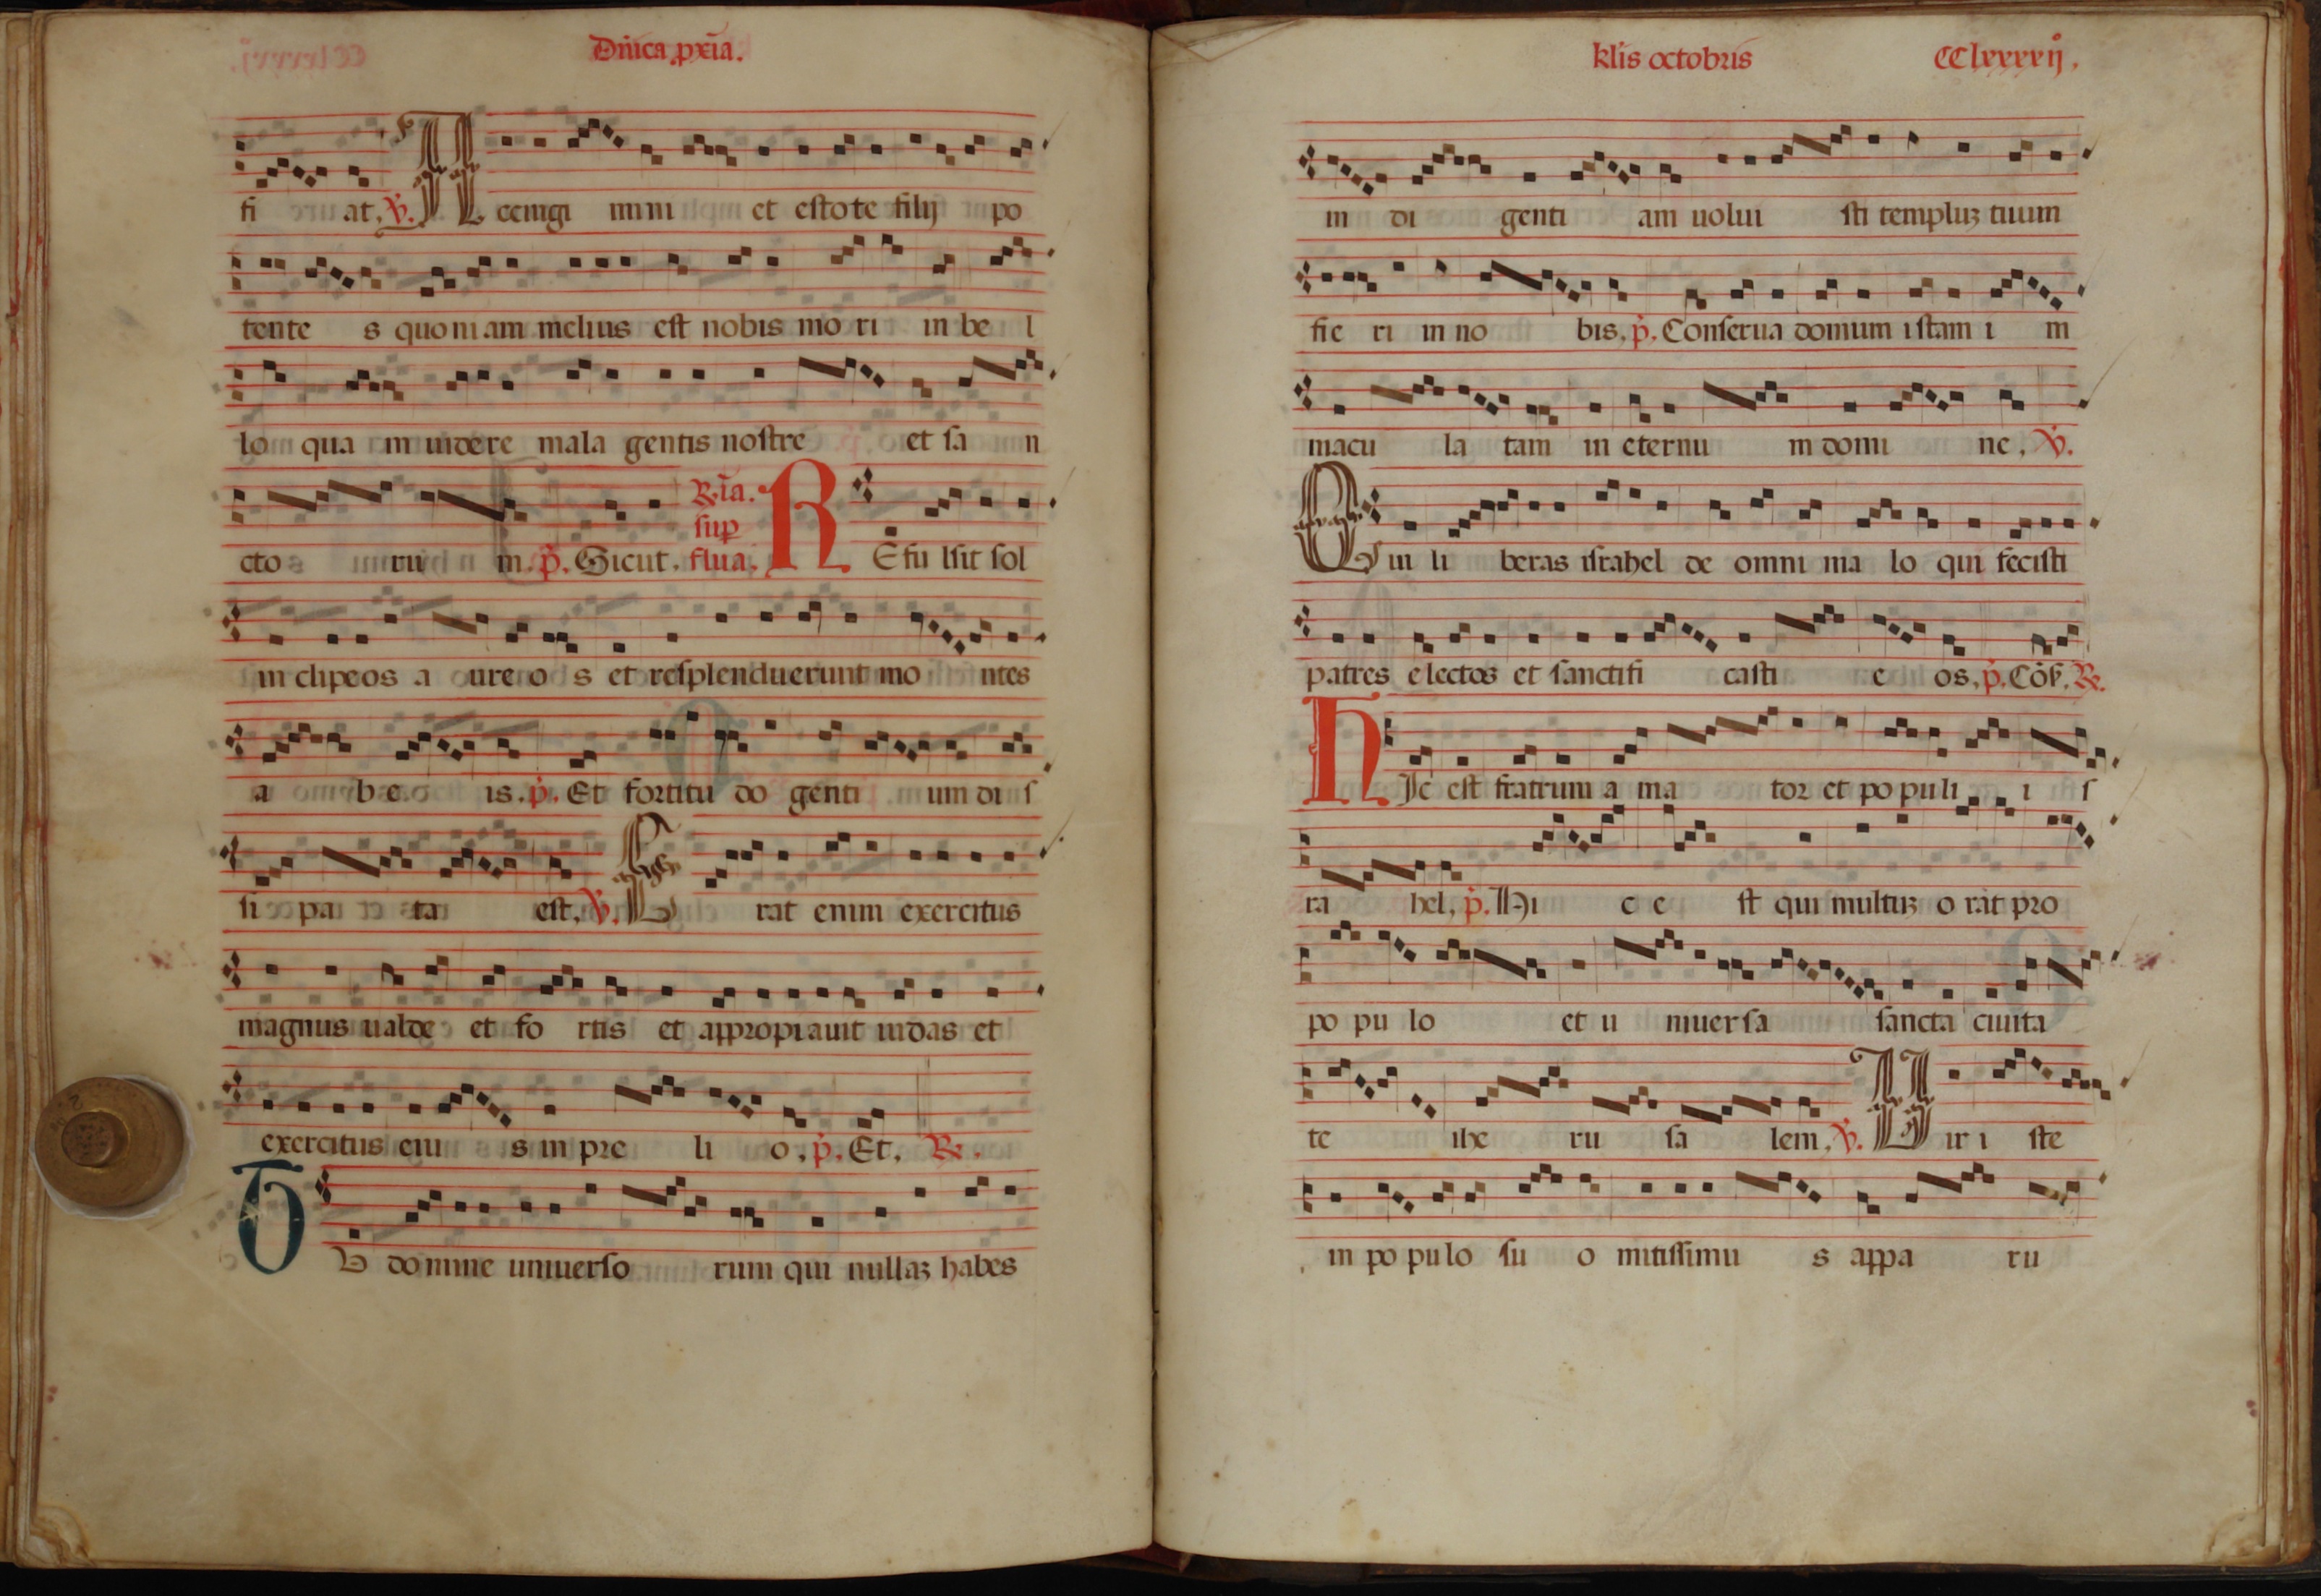 Dn̄ica .pxīa.
fi at. V̇. Accingi mini et estote filij po
tente s quoniam melius est nobis mo ri in be l
lo qua m uidere mala gentis nostre et sa n
cto ru m. ṗ. Sicut. R̄ia. sup flua. REfu lsit sol
in clipeos a ure o s et resplenduerunt mo ntes
a b e is. ṗ. Et fortitu do genti um di s
si pa ta est. V̇. E rat enim exercitus
magnus ualde et fo rtis et appropiauit iudas et
exercitus eiu s in pre li o. ṗ. Et. R.
TU domine uniuerso rum qui nullaꝫ habes
klīs octobris CClxxxxij.
in di genti am uolui sti templuꝫ tuum
fie ri in no bis. ṗ. Conserua domum istam i m
macu la tam in eternu m domi ne. V̇.
Qui li beras israhel de omni ma lo qui fecisti
patres electos et sanctifi casti e os. ṗ. Cōs̄. R.
HIc est fratrum a ma tor et po pu li i s
ra hel. ṗ. Hi c e st qui multuꝫ o rat pro
po pu lo et u niuer sa sancta ciuita
te ihe ru sa lem. V̇. Uir i ste
in po pu lo su o mitissimu s appa ru